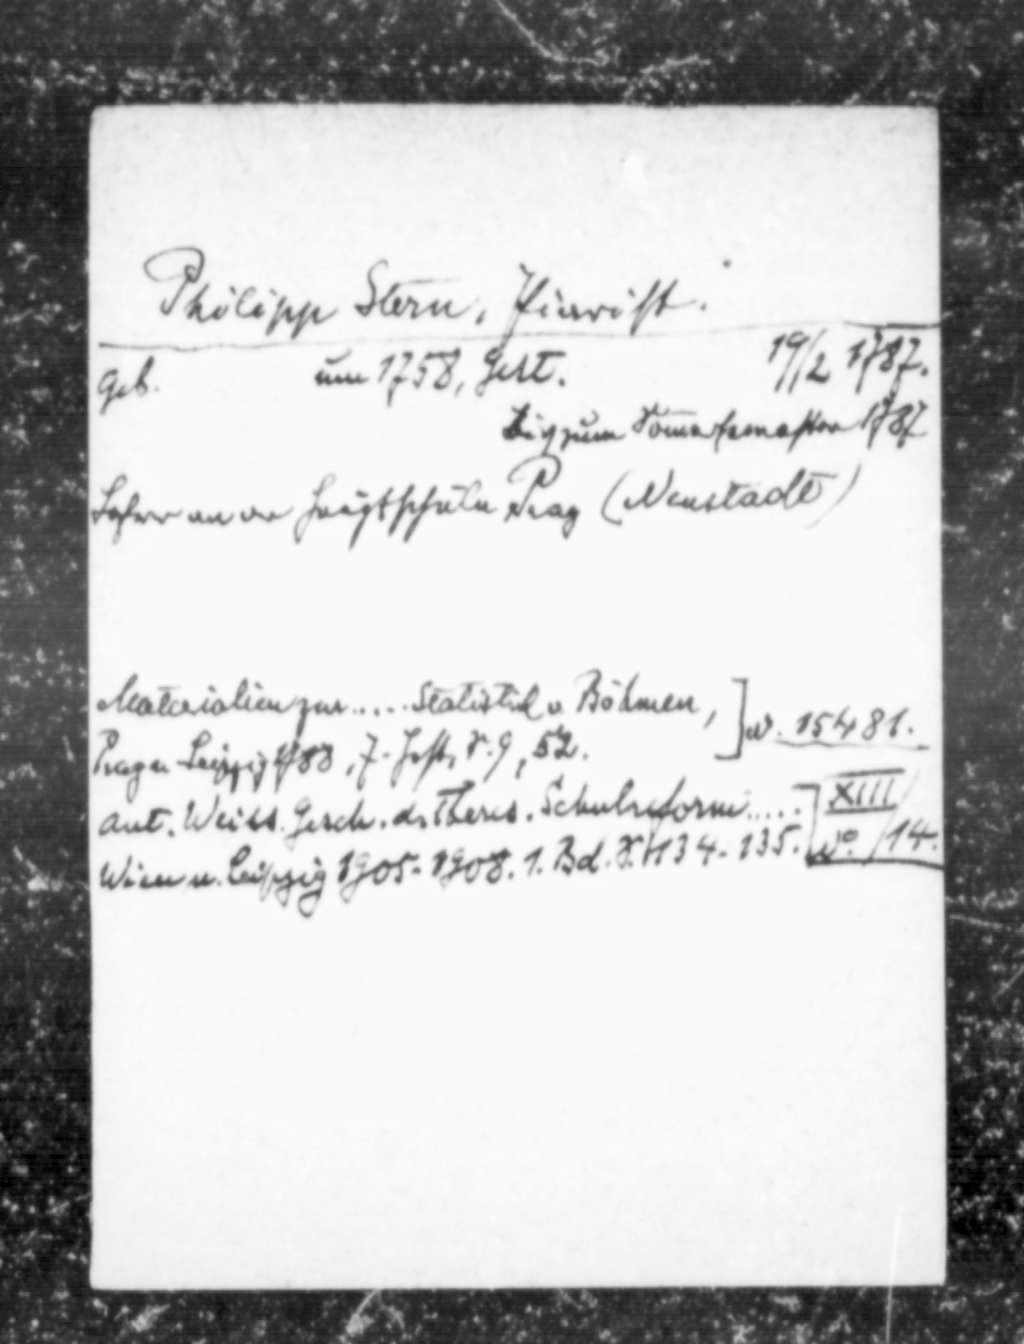 Philipp Stern, Piarist.
geb. um 1758, gest. 19/2 1787.
bis zum Somersemester 1787
Lehrer an der Hauptschule Prag (Neustadt)
Materialien zur..... Statistik v. Böhmen, ] W. 15481.
Prag u. Leipzig 1788, 7. Heft, S. 9, 52.
Ant. Weiss. Gesch. d. Theres. Schulreform..... ] XIII/14.
Wien u. Leipzig 1905-1908. 1. Bd. S. 134-135.